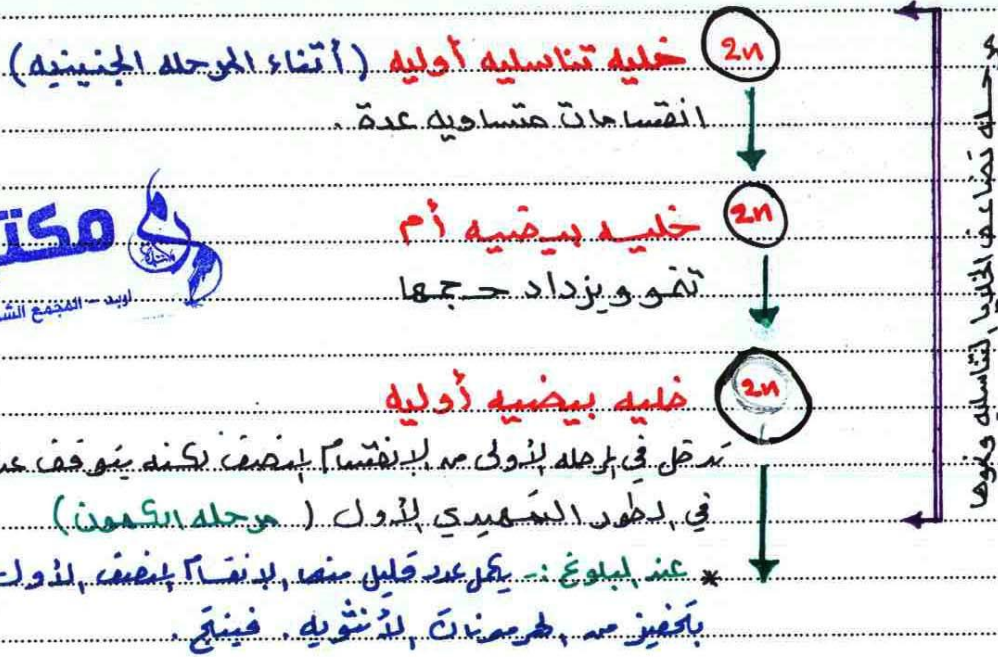 2n خليه تناسليه أوليه (أثناء المرحله الجنينيه)
انقسامات متساويه عدة .
2n خليه بيضيه أم
تنمو ويزداد حجمها
2n خليه بيضيه أوليه
تدخل في المرحله الأولى من الانقسام المنصف لكنه يتوقف
في الطور التمهيدي الأول ( مرحله الكمون )
* عند البلوغ :- يكمل عدد قليل منها الانقسام المنصف الأول
بتحفيز من الهرمونات الأنثويه . فينتج .
مرحله تضاعف الخلايا التناسليه ونموها
اربد - المجمع